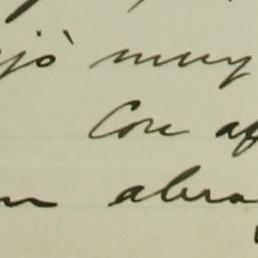 jò muy
Con af
un abra